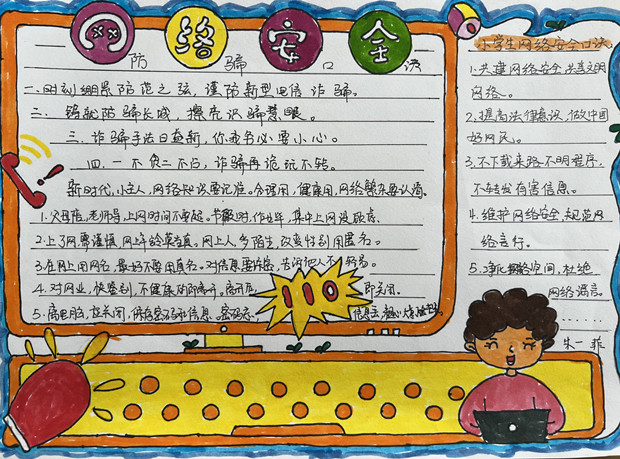 网络安全
防骗口诀
一.时刻绷紧防范之弦,谨防新型电信诈骗。
二、铸就防骗长城,擦亮识骗慧眼。
三.诈骗手法日益新,你我务必要小心。
四.一不贪二不占,诈骗再诡玩不转。
新时代,小主人,网络知识要记准。合理用,健康用,网络繁杂要认清。
1.父母陪,老师导,上网时间不要超。节假时,作业毕,集中上网没敢忘。
2.上了网要谨慎,网上年龄莫当真。网上人,多陌生,改变性别用匿名。
3.在网上用网名,最好不要用真名。对信息要
4.对网业,快鉴别,不健康的即离开。
即关闭。
5.离电脑,在关闭,
110
小学生网络安全口诀
1.共建网络安全 共享文明
网络。
2.提高法律意识,做中国
好网民。
3.不下载来路不明程序,
不转发有害信息。
4.维护网络安全,规范网
络言行。
5.净化网络空间,杜绝
网络谣言。
......
朱一菲